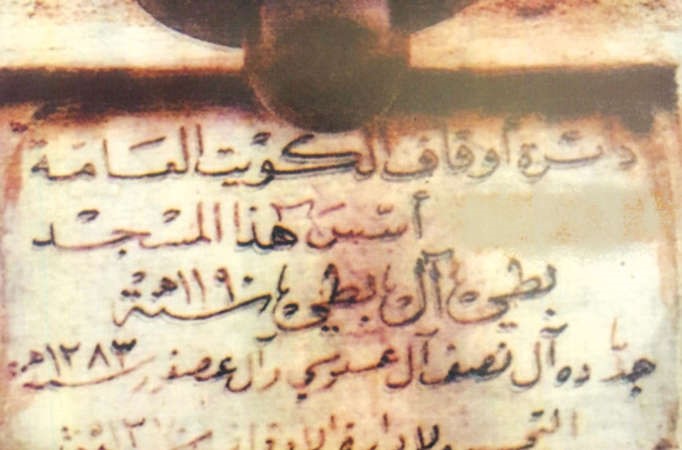 دائرة أوقاف الكويت العامة
أسس هذا المسجد
بطي آل بطي سنة ١١٩٠هـ
جدده آل نصف آل عسوسي وآل عصفور سنة ١٢٨٣هـ